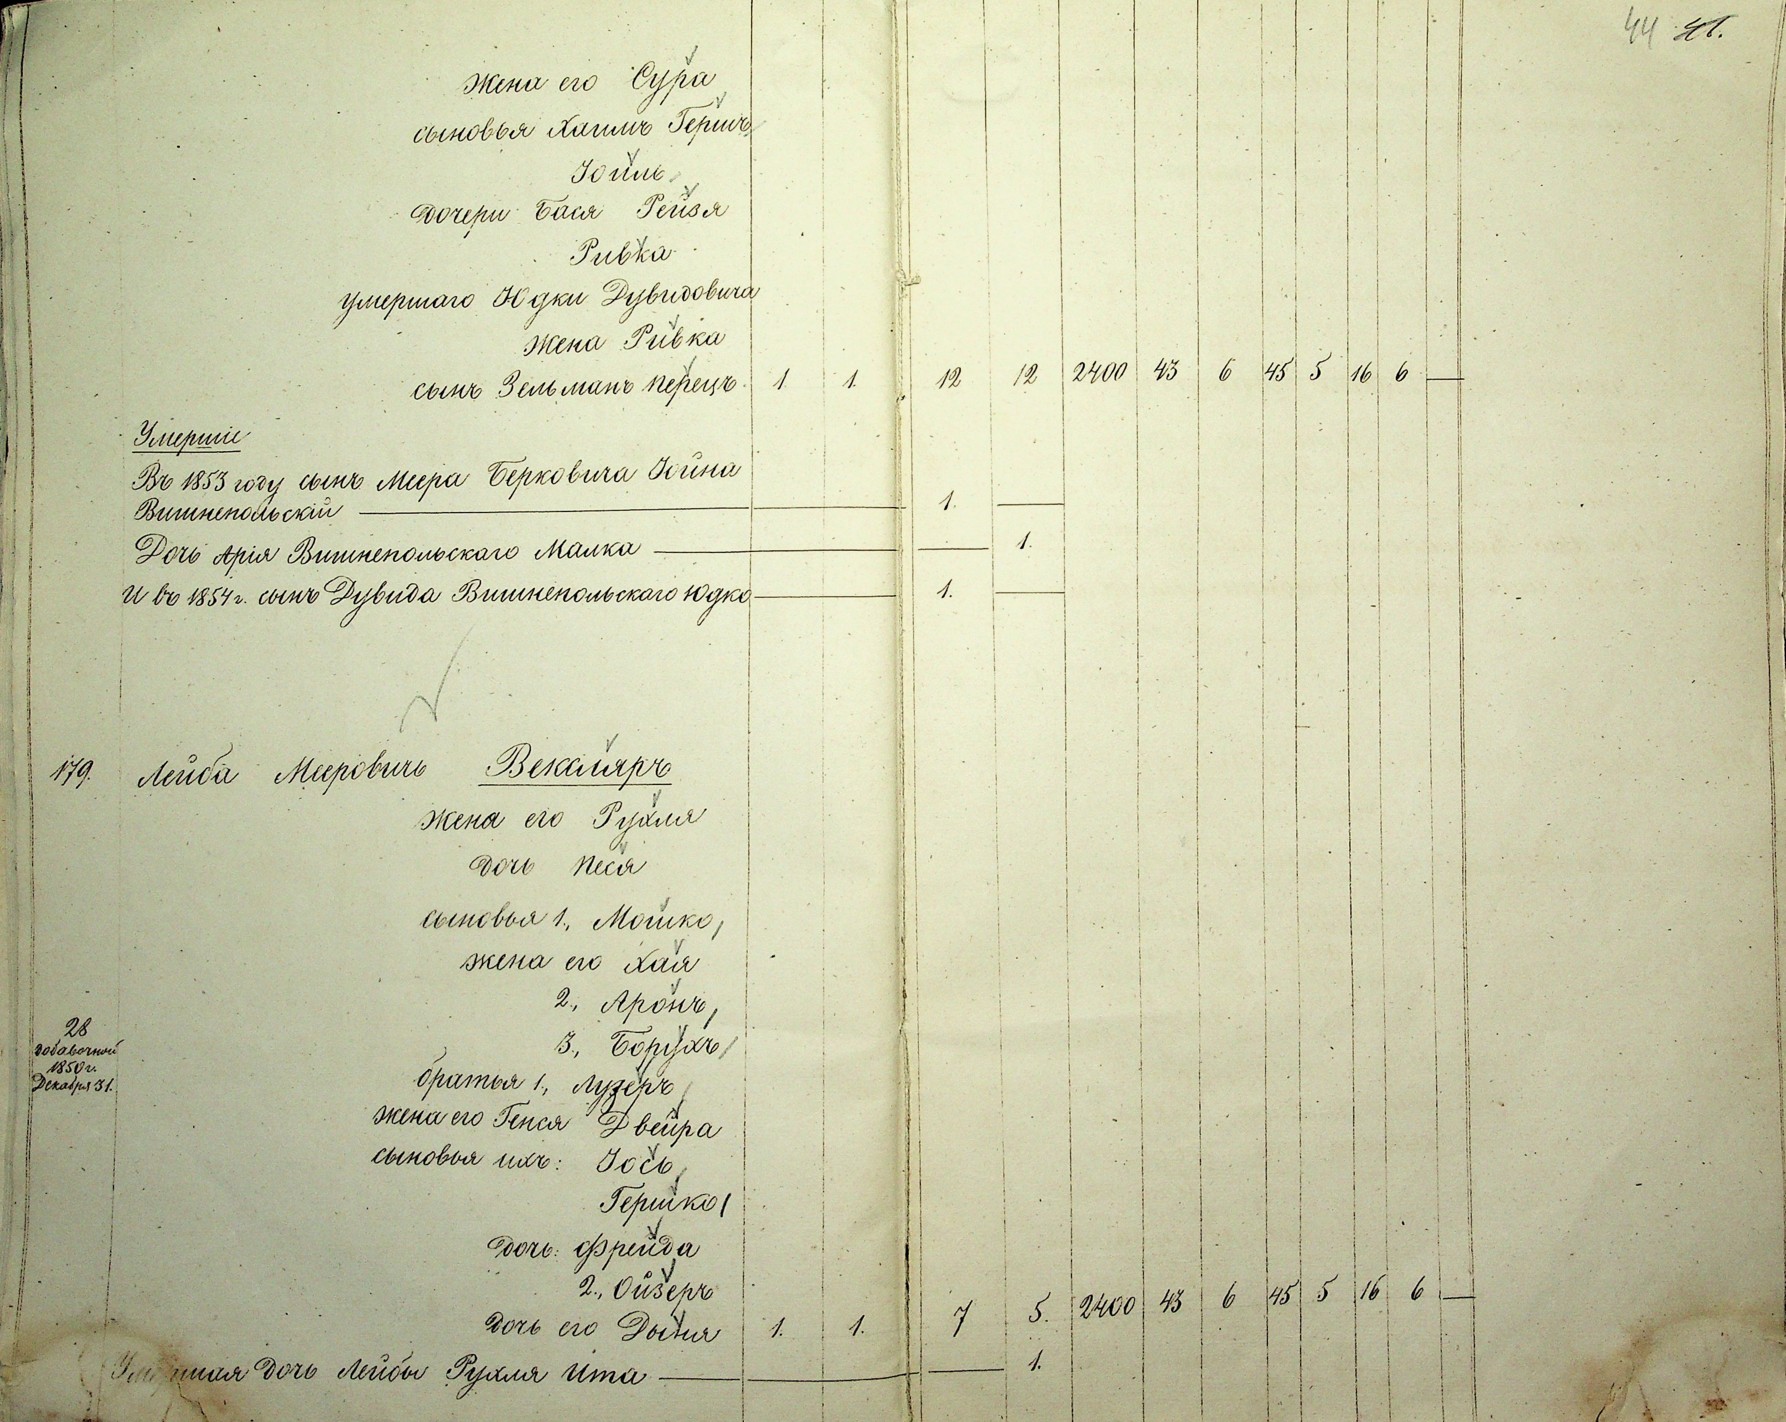 44 41.
жена его Сура
сыновья Хаимъ Гершъ
Іоиль
дочери Бася Рейзя
Ривка
умершаго Юдки Дувидовича
жена Ривка
сынъ Зельманъ Перецъ 1 1. 12 12 2400 43 6 45 5 16 6 —
Умершіе
Въ 1853 году сынъ Меера Берковича Іойна
Вишнепольскій — 1. —
Дочь Арія Вишнепольскаго Малка — 1.
И въ 1854 г. сынъ Дувида Вишнепольскаго Юдко — 1. —
179. Лейба Мееровичъ Вексляръ
жена его Рухля
дочь Песя
сыновья 1., Мошко,
жена его Хая
2., Аронъ,
3., Борухъ,
28
добавочной
1850 г.
Декабря 31.
братья 1., Лузеръ,
жена его Генся Двейра
сыновья ихъ: Іось,
Гершко,
дочь: Фрейда
2., Ойзеръ
дочь его Дыня 1. 1. 7 5. 2400 43 6 45 5 16 6 —
Умершая дочь Лейбы Рухля Ита — 1.